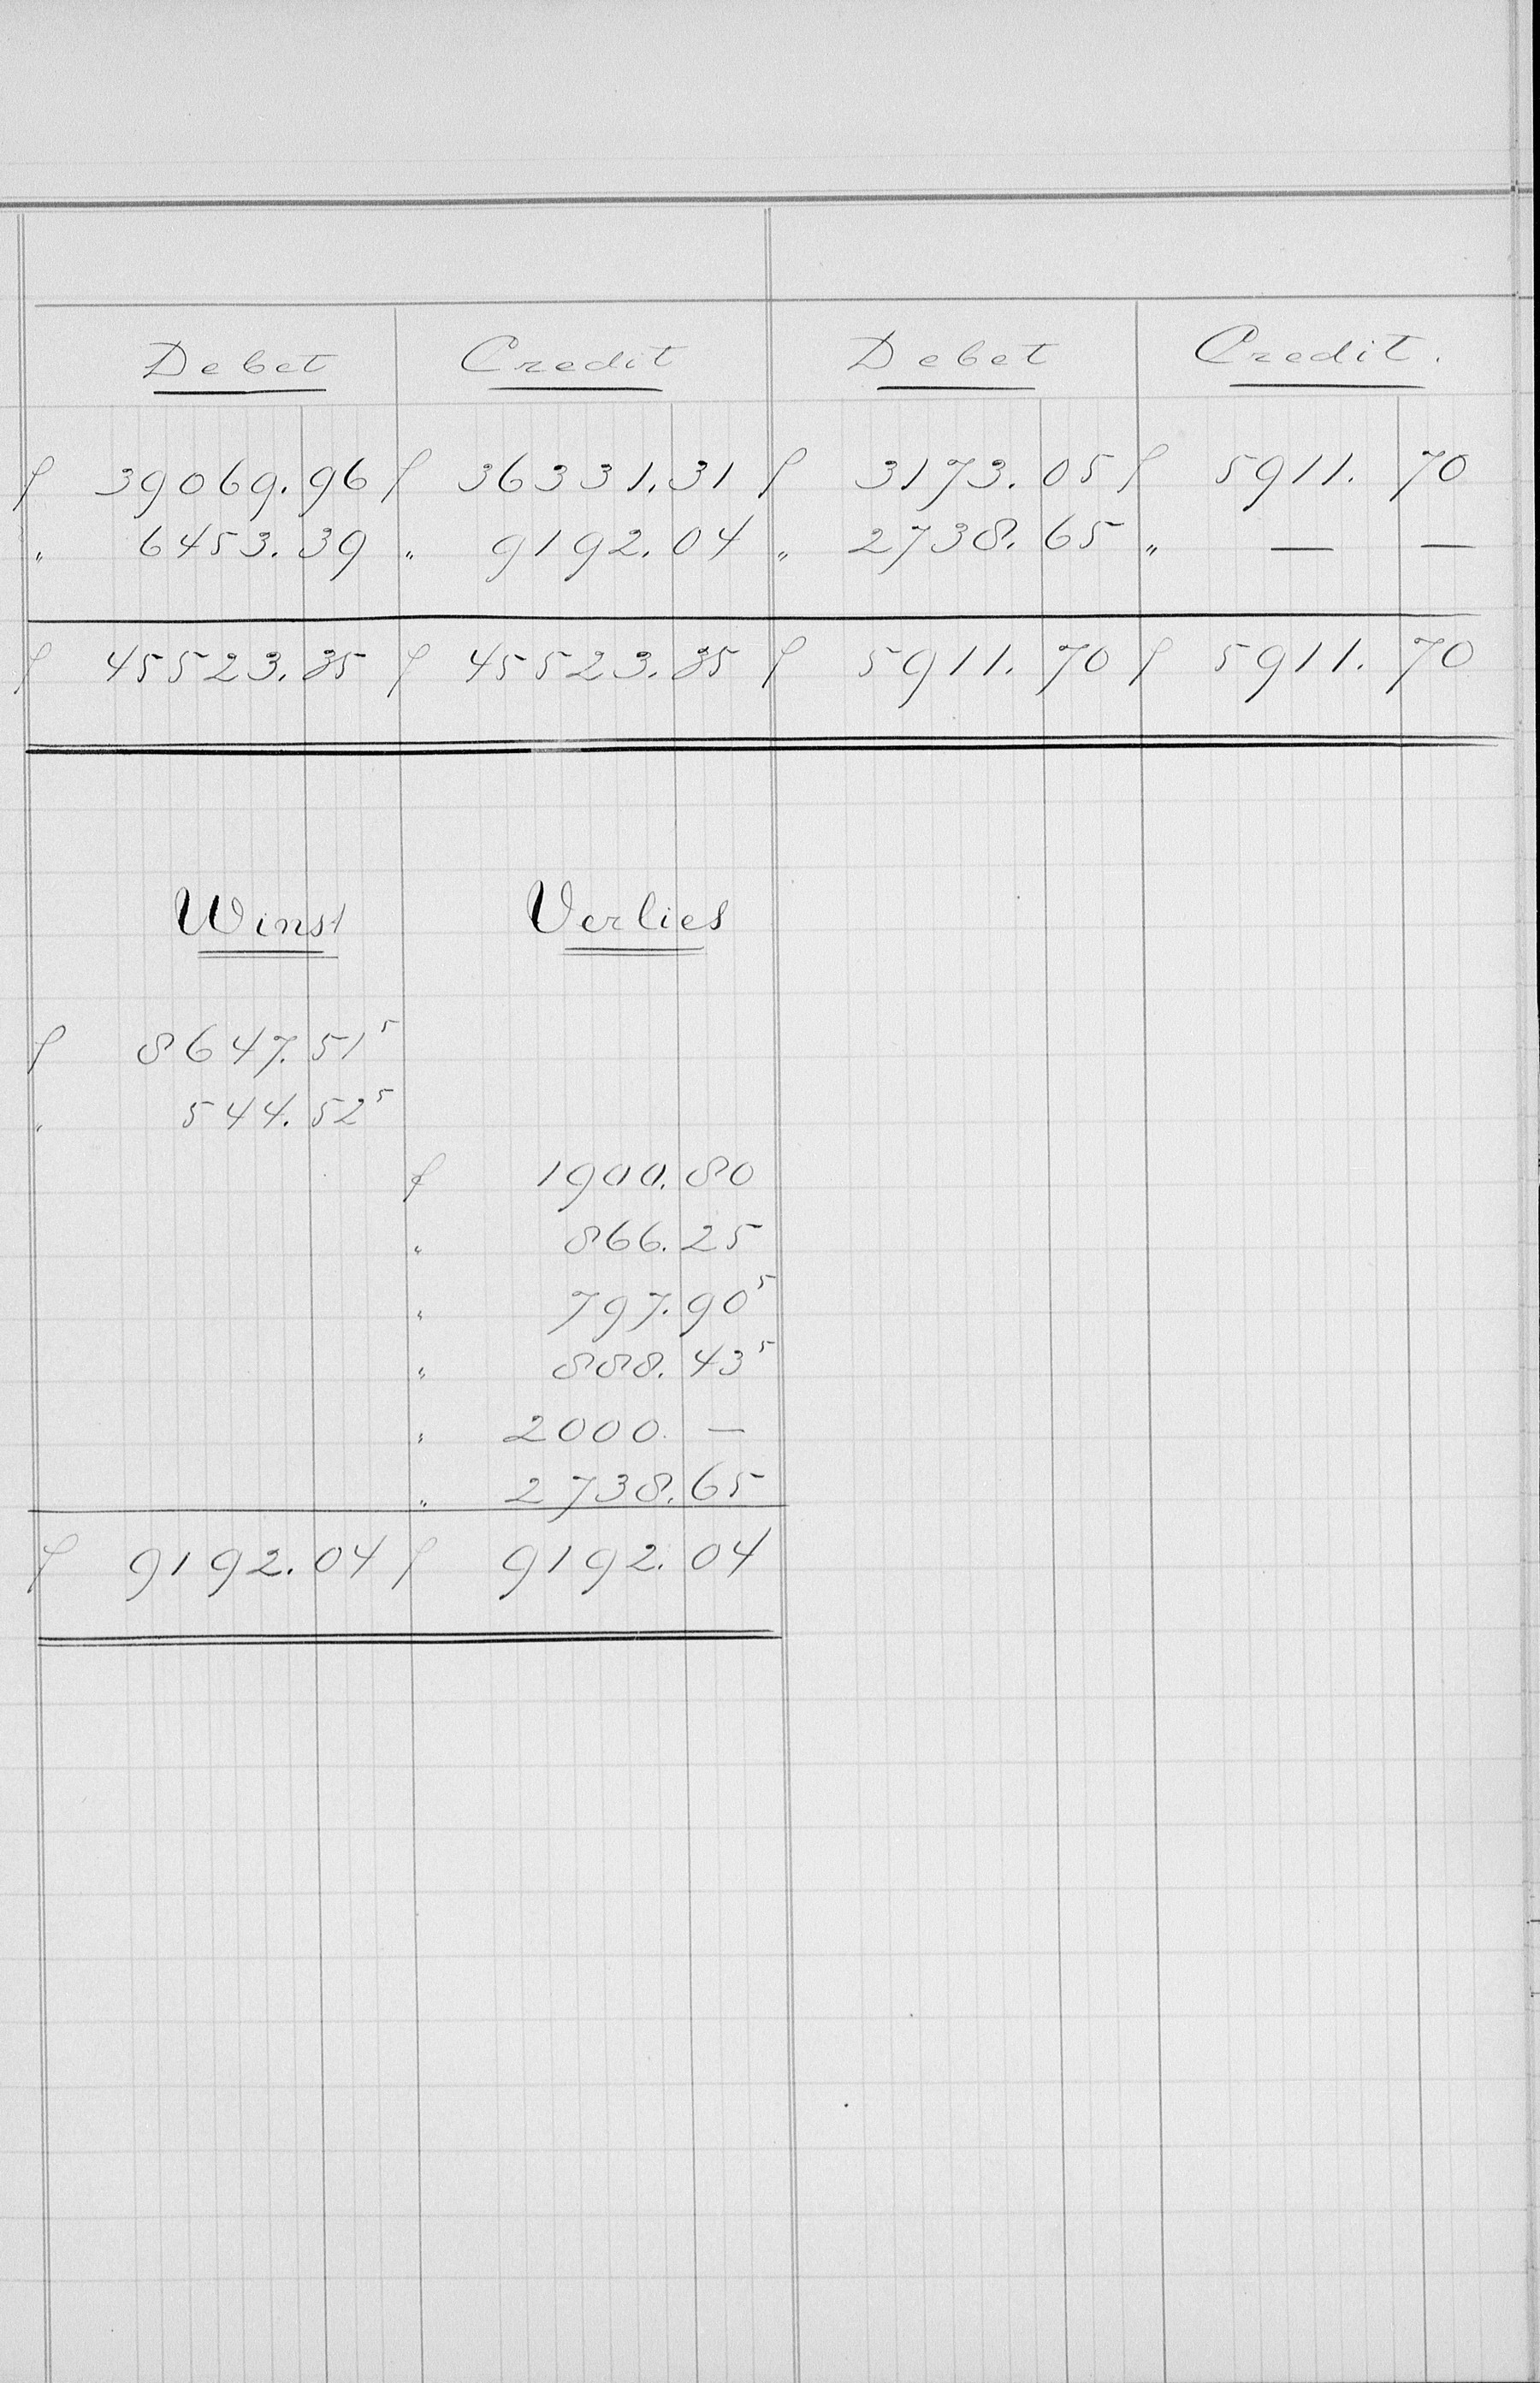 Debet Credit Debet Credit.
f 39069.96 f 36331.31 f 3173.05 f 5911.70
" 6453.39 " 9192.04 " 2738.65 " — —
f 45523.35 f 45523.35 f 5911.70 f 5911.70
Winst Verlies
f 8647.51⁵
" 544.52⁵
f 1900.80
" 866.25
" 797.90⁵
" 888.43⁵
" 2000. —
" 2738.65
f 9192.04 f 9192.04